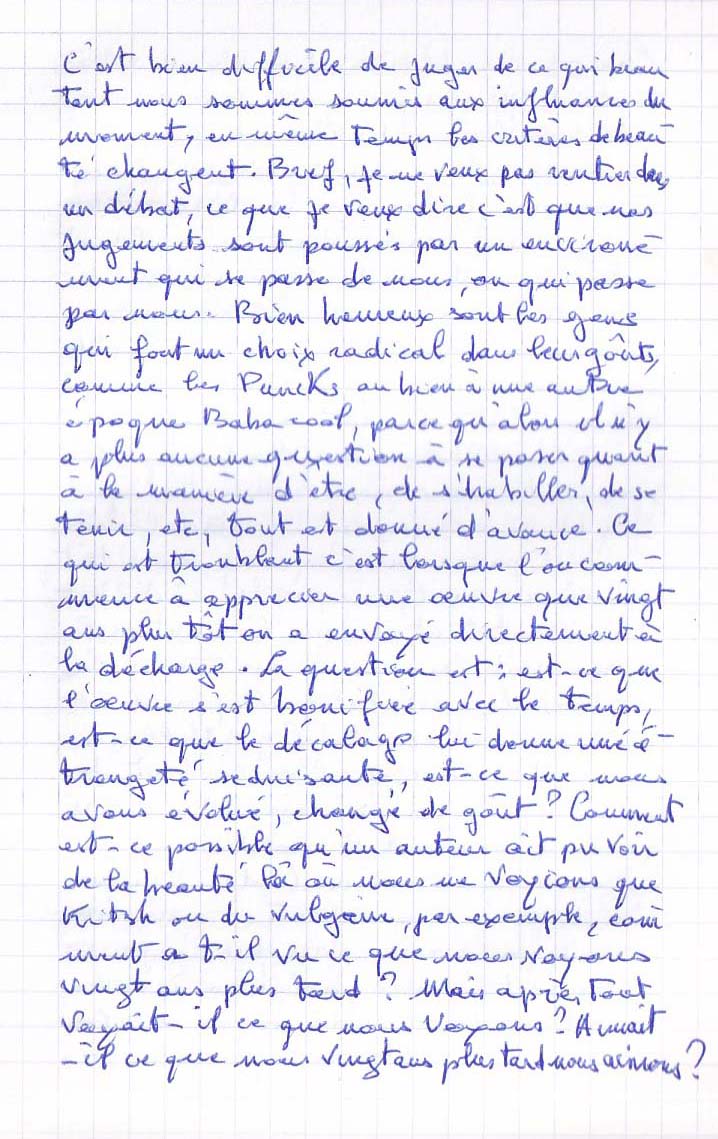 C'est bien difficile de juger de ce qui beau
tant nous sommes soumis aux influances du
moment, en même temps les critères de beau-
té changent. Bref, je ne veux pas rentrer dans
un débat, ce que je veux dire c'est que nos
jugements sont poussés par un environé-
ment qui se passe de nous, ou qui passe
par nous. Bien heureux sont les gens
qui font un choix radical dans leurs goûts,
comme les Puncks ou bien à une autre
époque Baba cool, parce qu'alors il n'y
a plus aucune question à se poser quant
à la manière d'etre, de s'habiller, de se
tenir, etc, tout est donné d'avance. Ce
qui est troublant c'est lorsque l'on com-
mence à apprecier une oeuvre que vingt
ans plus tôt on a envoyé directement à
la décharge. La question est : est-ce que
l'oeuvre s'est bonifiée avec le temps,
est-ce que le décalage lui donne une é-
trangeté séduisante, est-ce que nous
avons évolué, changé de goût ? Comment
est-ce possible qu'un auteur ait pu voir
de la beauté là où nous ne voyions que
Kitsh ou du vulgaire, par exemple, com
ment a t-il vu ce que nous voyons
vingt ans plus tard ? Mais après tout
Voyait-il ce que nous voyons ? Aimait
-il ce que nous vingt ans plus tard nous aimons ?